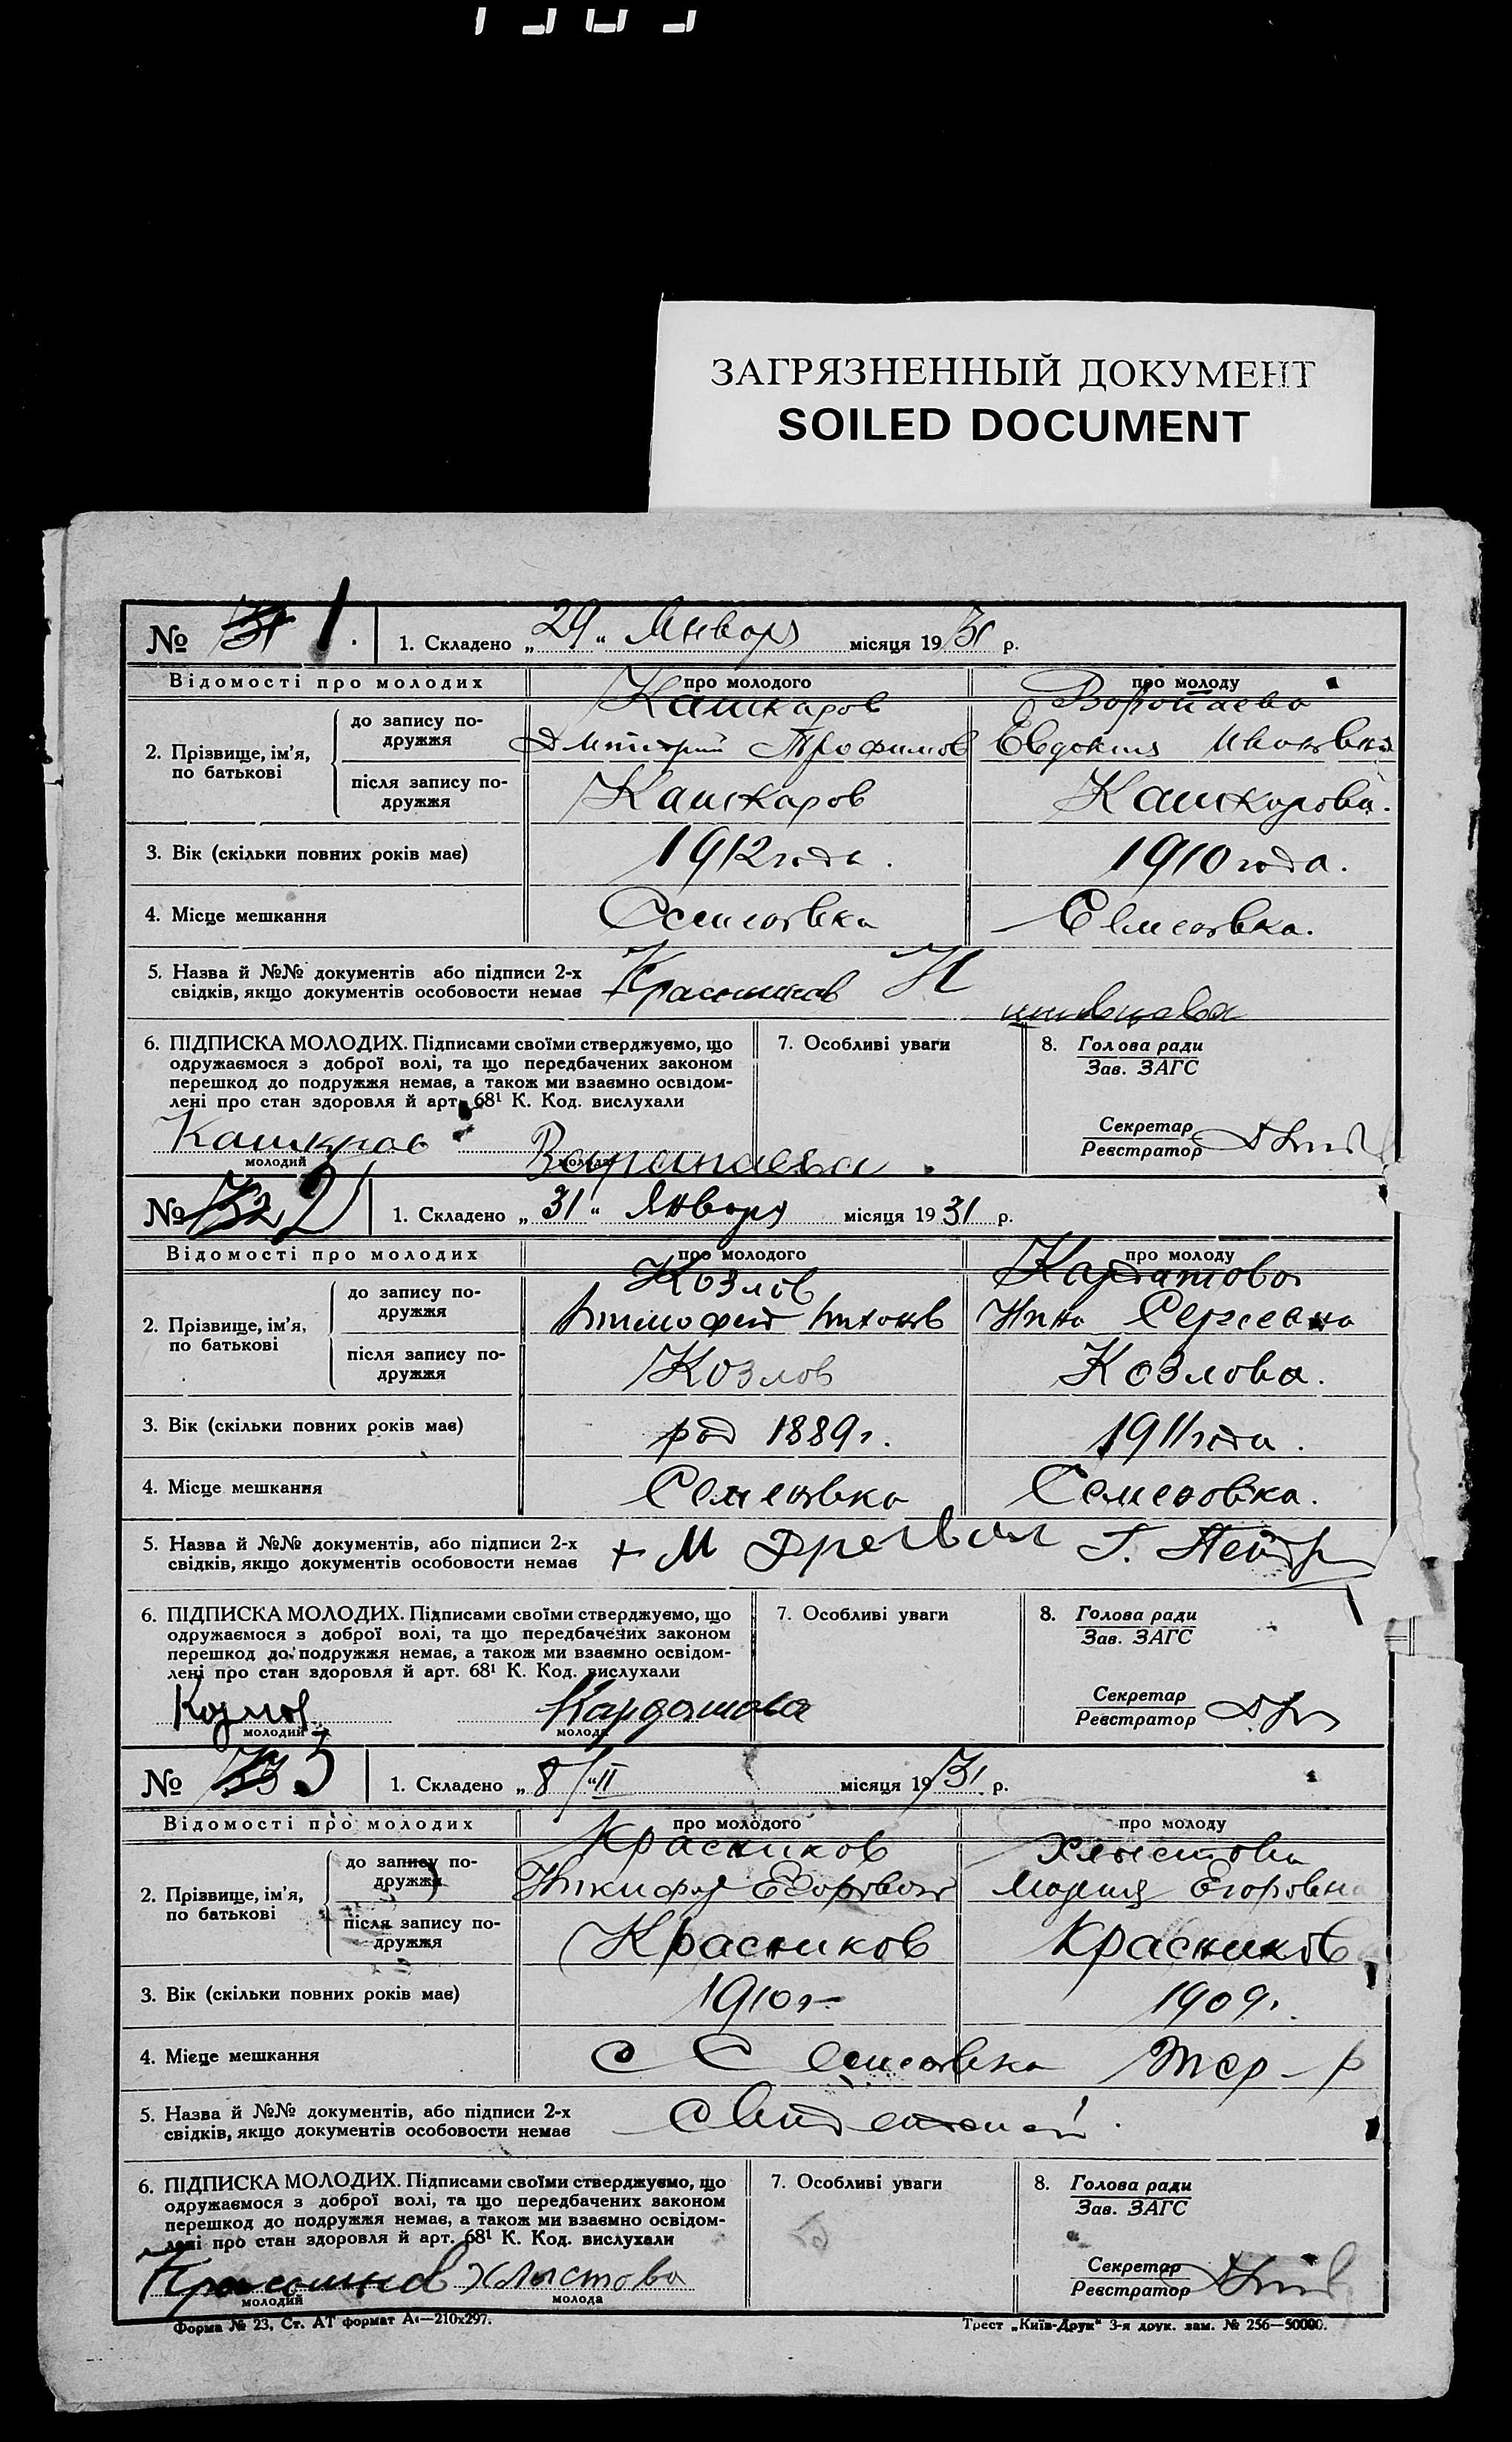 ЗАГРЯЗНЕННЫЙ ДОКУМЕНТ
SOILED DOCUMENT
№ 1.
1. Складено „29“ Января місяця 1931 р.
Відомості про молодих
про молодого
про молоду
2. Прізвище, ім'я, по батькові
до запису подружжя
Кашкаров
Дмитрий Трофимов
Воропаева
Евдокия Ивановна
після запису подружжя
Кашкаров
Кашкарова.
3. Вік (скільки повних років має)
1912 года.
1910 года.
4. Місце мешкання
Семеновка
Семеновка.
5. Назва й №№ документів або підписи 2-х
свідків, якщо документів особовости немає
Н
6. ПІДПИСКА МОЛОДИХ. Підписами своїми стверджуємо, що
одружаємося з доброї волі, та що передбачених законом
перешкод до подружжя немає, а також ми взаємно освідом-
лені про стан здоровля й арт. 68¹ К. Код. вислухали
7. Особливі уваги
8. Голова ради
Зав. ЗАГС
Секретар
Реєстратор
молодий
молода
№ 2
1. Складено „31“ Января місяця 1931 р.
Відомості про молодих
про молодого
про молоду
2. Прізвище, ім'я, по батькові
до запису подружжя
Козлов
Тимофей Тихонов
Кардашова
Нина Сергеевна
після запису подружжя
Козлов
Козлова.
3. Вік (скільки повних років має)
род 1889 г.
1911 года.
4. Місце мешкання
Семеновка
Семеновка.
5. Назва й №№ документів, або підписи 2-х
свідків, якщо документів особовости немає
+ М
6. ПІДПИСКА МОЛОДИХ. Підписами своїми стверджуємо, що
одружаємося з доброї волі, та що передбачених законом
перешкод до подружжя немає, а також ми взаємно освідом-
лені про стан здоровля й арт. 68¹ К. Код. вислухали
7. Особливі уваги
8. Голова ради
Зав. ЗАГС
Секретар
Реєстратор
Козлов
молодий
Кардашова
молода
№ 3
1. Складено „8/II“ місяця 1931 р.
Відомості про молодих
про молодого
про молоду
2. Прізвище, ім'я, по батькові
до запису подружжя
Красников
Никифор Егорович
Хлыстова
Мария Егоровна
після запису подружжя
Красников
Красников
3. Вік (скільки повних років має)
1910 г
1909 г.
4. Місце мешкання
с Семеновка Тер-р
5. Назва й №№ документів, або підписи 2-х
свідків, якщо документів особовости немає
6. ПІДПИСКА МОЛОДИХ. Підписами своїми стверджуємо, що
одружаємося з доброї волі, та що передбачених законом
перешкод до подружжя немає, а також ми взаємно освідом-
лені про стан здоровля й арт. 68¹ К. Код. вислухали
7. Особливі уваги
8. Голова ради
Зав. ЗАГС
Секретар
Реєстратор
Хлыстова
молодий
молода
Форма № 23, Ст. АТ формат А₄—210x297.
Трест „Київ-Друк“ 3-я друк. зам. № 256—50000.